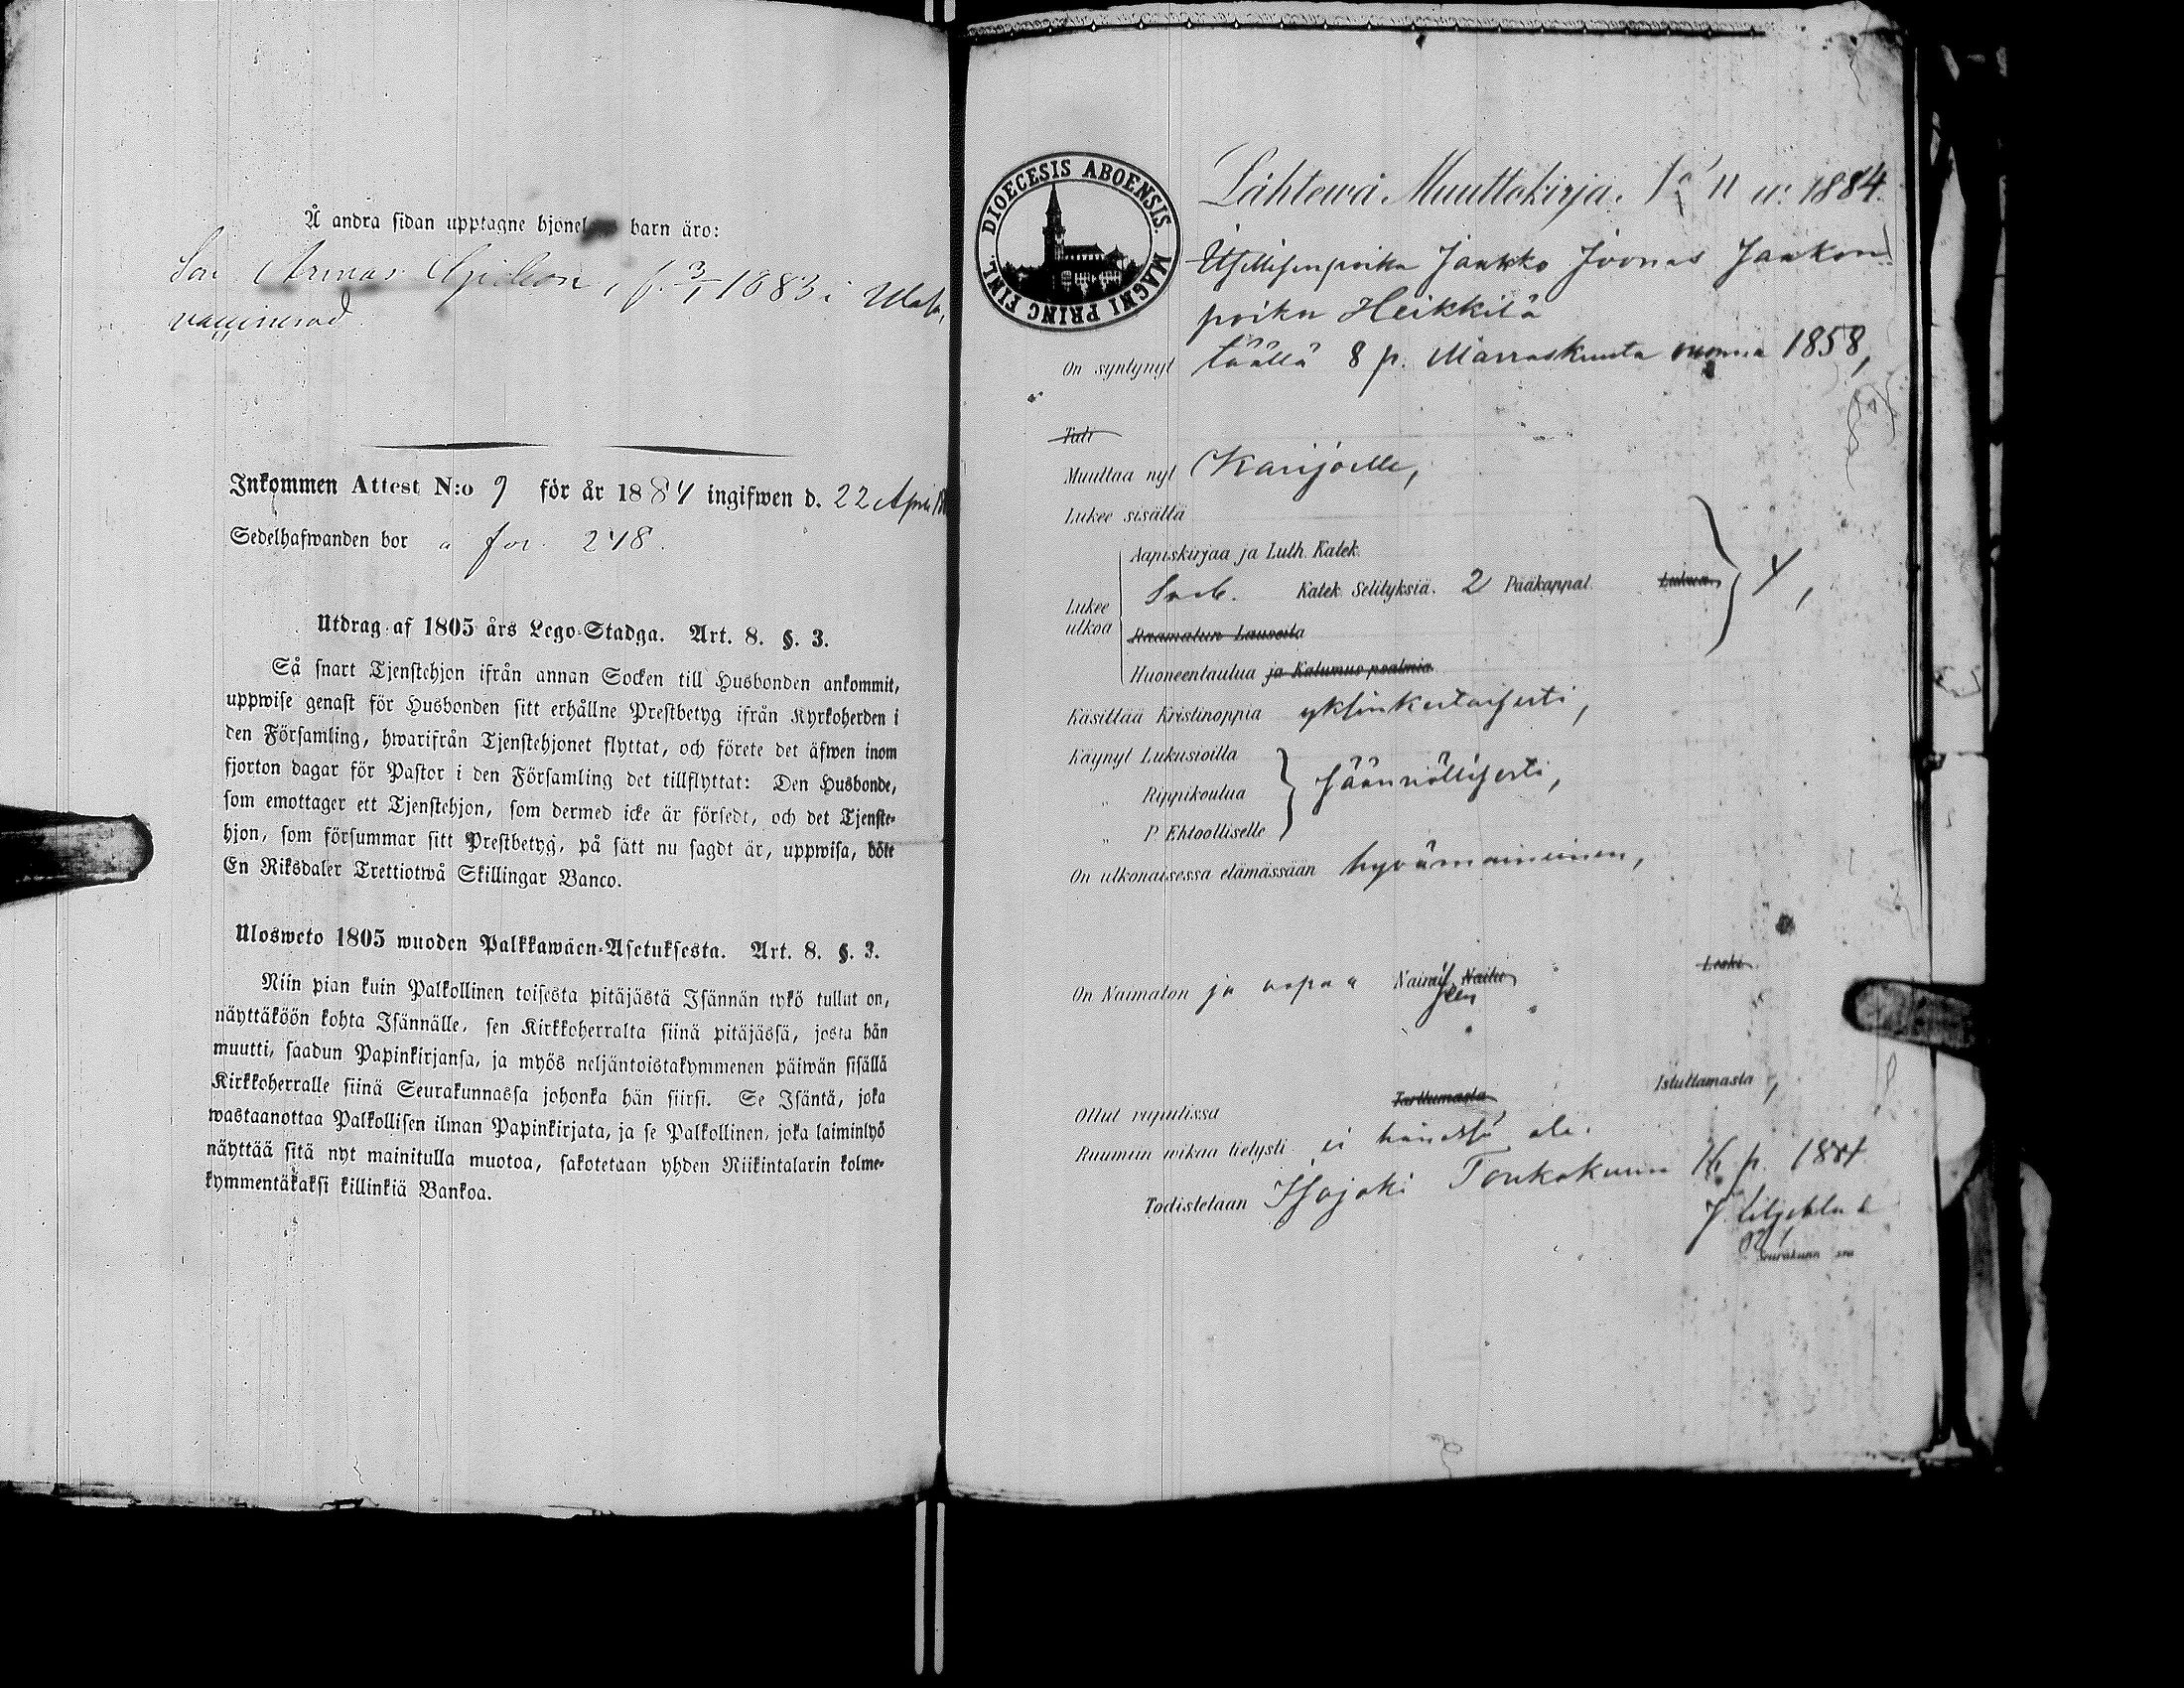 Å andra sidan upptagne hjonel barn äro:
Son Armas Gideon, f. 3/1 1883 i
vaccinerad.
Inkommen Attest N:o 9 för år 1884 ingifwen d. 22 April
Sedelhafwanden bor à fol. 248.
Utdrag af 1805 års Lego-Stadga. Art. 8. §. 3.
Så snart Tjenstehjon ifrån annan Socken till Husbonden ankommit,
uppwise genast för Husbonden sitt erhållne Prestbetyg ifrån Kyrkoherden i
den Församling, hwarifrån Tjenstehjonet flyttat, och förete det äfwen inom
fjorton dagar för Pastor i den Församling det tillflyttat: Den Husbonde,
som emottager ett Tjenstehjon, som dermed icke är försedt, och det Tjenste-
hjon, som försummar sitt Prestbetyg, på sätt nu sagdt är, uppwisa, böte
En Riksdaler Trettiotwå Skillingar Banco.
Ulosweto 1805 wuoden Palkkawäen-Asetuksesta. Art. 8. §. 3.
Niin pian kuin Palkollinen toisesta pitäjästä Isännän tykö tullut on,
näyttäköön kohta Isännälle, sen Kirkkoherralta siinä pitäjässä, josta hän
muutti, saadun Papinkirjansa, ja myös neljäntoistakymmenen päiwän sisällä
Kirkkoherralle siinä Seurakunnassa johonka hän siirsi. Se Isäntä, joka
wastaanottaa Palkollisen ilman Papinkirjata, ja se Palkollinen, joka laiminlyö
näyttää sitä nyt mainitulla muotoa, sakotetaan yhden Riikintalarin kolme-
kymmentäkaksi killinkiä Bankoa.
DIOECESIS ABOENSIS. MAGNI PRINC FINL.
Lähtewä Muuttokirja. No 11 w: 1884.
Itsellisenpoika Jaakko Joonas Jaakon
poika Heikkilä
On syntynyt täällä 8 p. Marraskuuta vuonna 1858,
Tuli
Muuttaa nyt Karijoelle,
Lukee sisältä
Aapiskirjaa ja Luth. Katek.
Lukee ulkoa Katek. Selityksiä. 2 Pääkappal. Lukua
Raamatun Lauseita
Huoneentaulua ja Katumus psalmia
Käsittää Kristinoppia yksinkertaisesti,
Käynyt Lukusioilla
„ Rippikoulua säännöllisesti,
„ P. Ehtoolliselle
On ulkonaisessa elämässään hyvämaineinen,
On Naimaton ja vapaa Naimiseen Naitu Leski
Ollut rupulissa Tarttumasta Istuttamasta,
Ruumiin wikaa tietysti ei hänessä ole.
Todistetaan Isojoki Toukokuun 16 p. 1884
J. Liljeblad